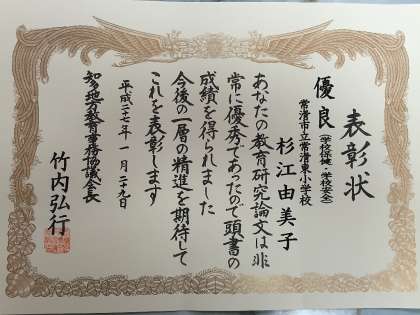 表彰状
優良（学校保健・学校安全）
常滑市立常滑東小学校
杉江由美子
あなたの教育研究論文は非
常に優秀であったので頭書の
成績を得られました
今後の一層の精進を期待して
これを表彰します
平成二十七年一月二十九日
知多地方教育事務協議会長
竹内弘行